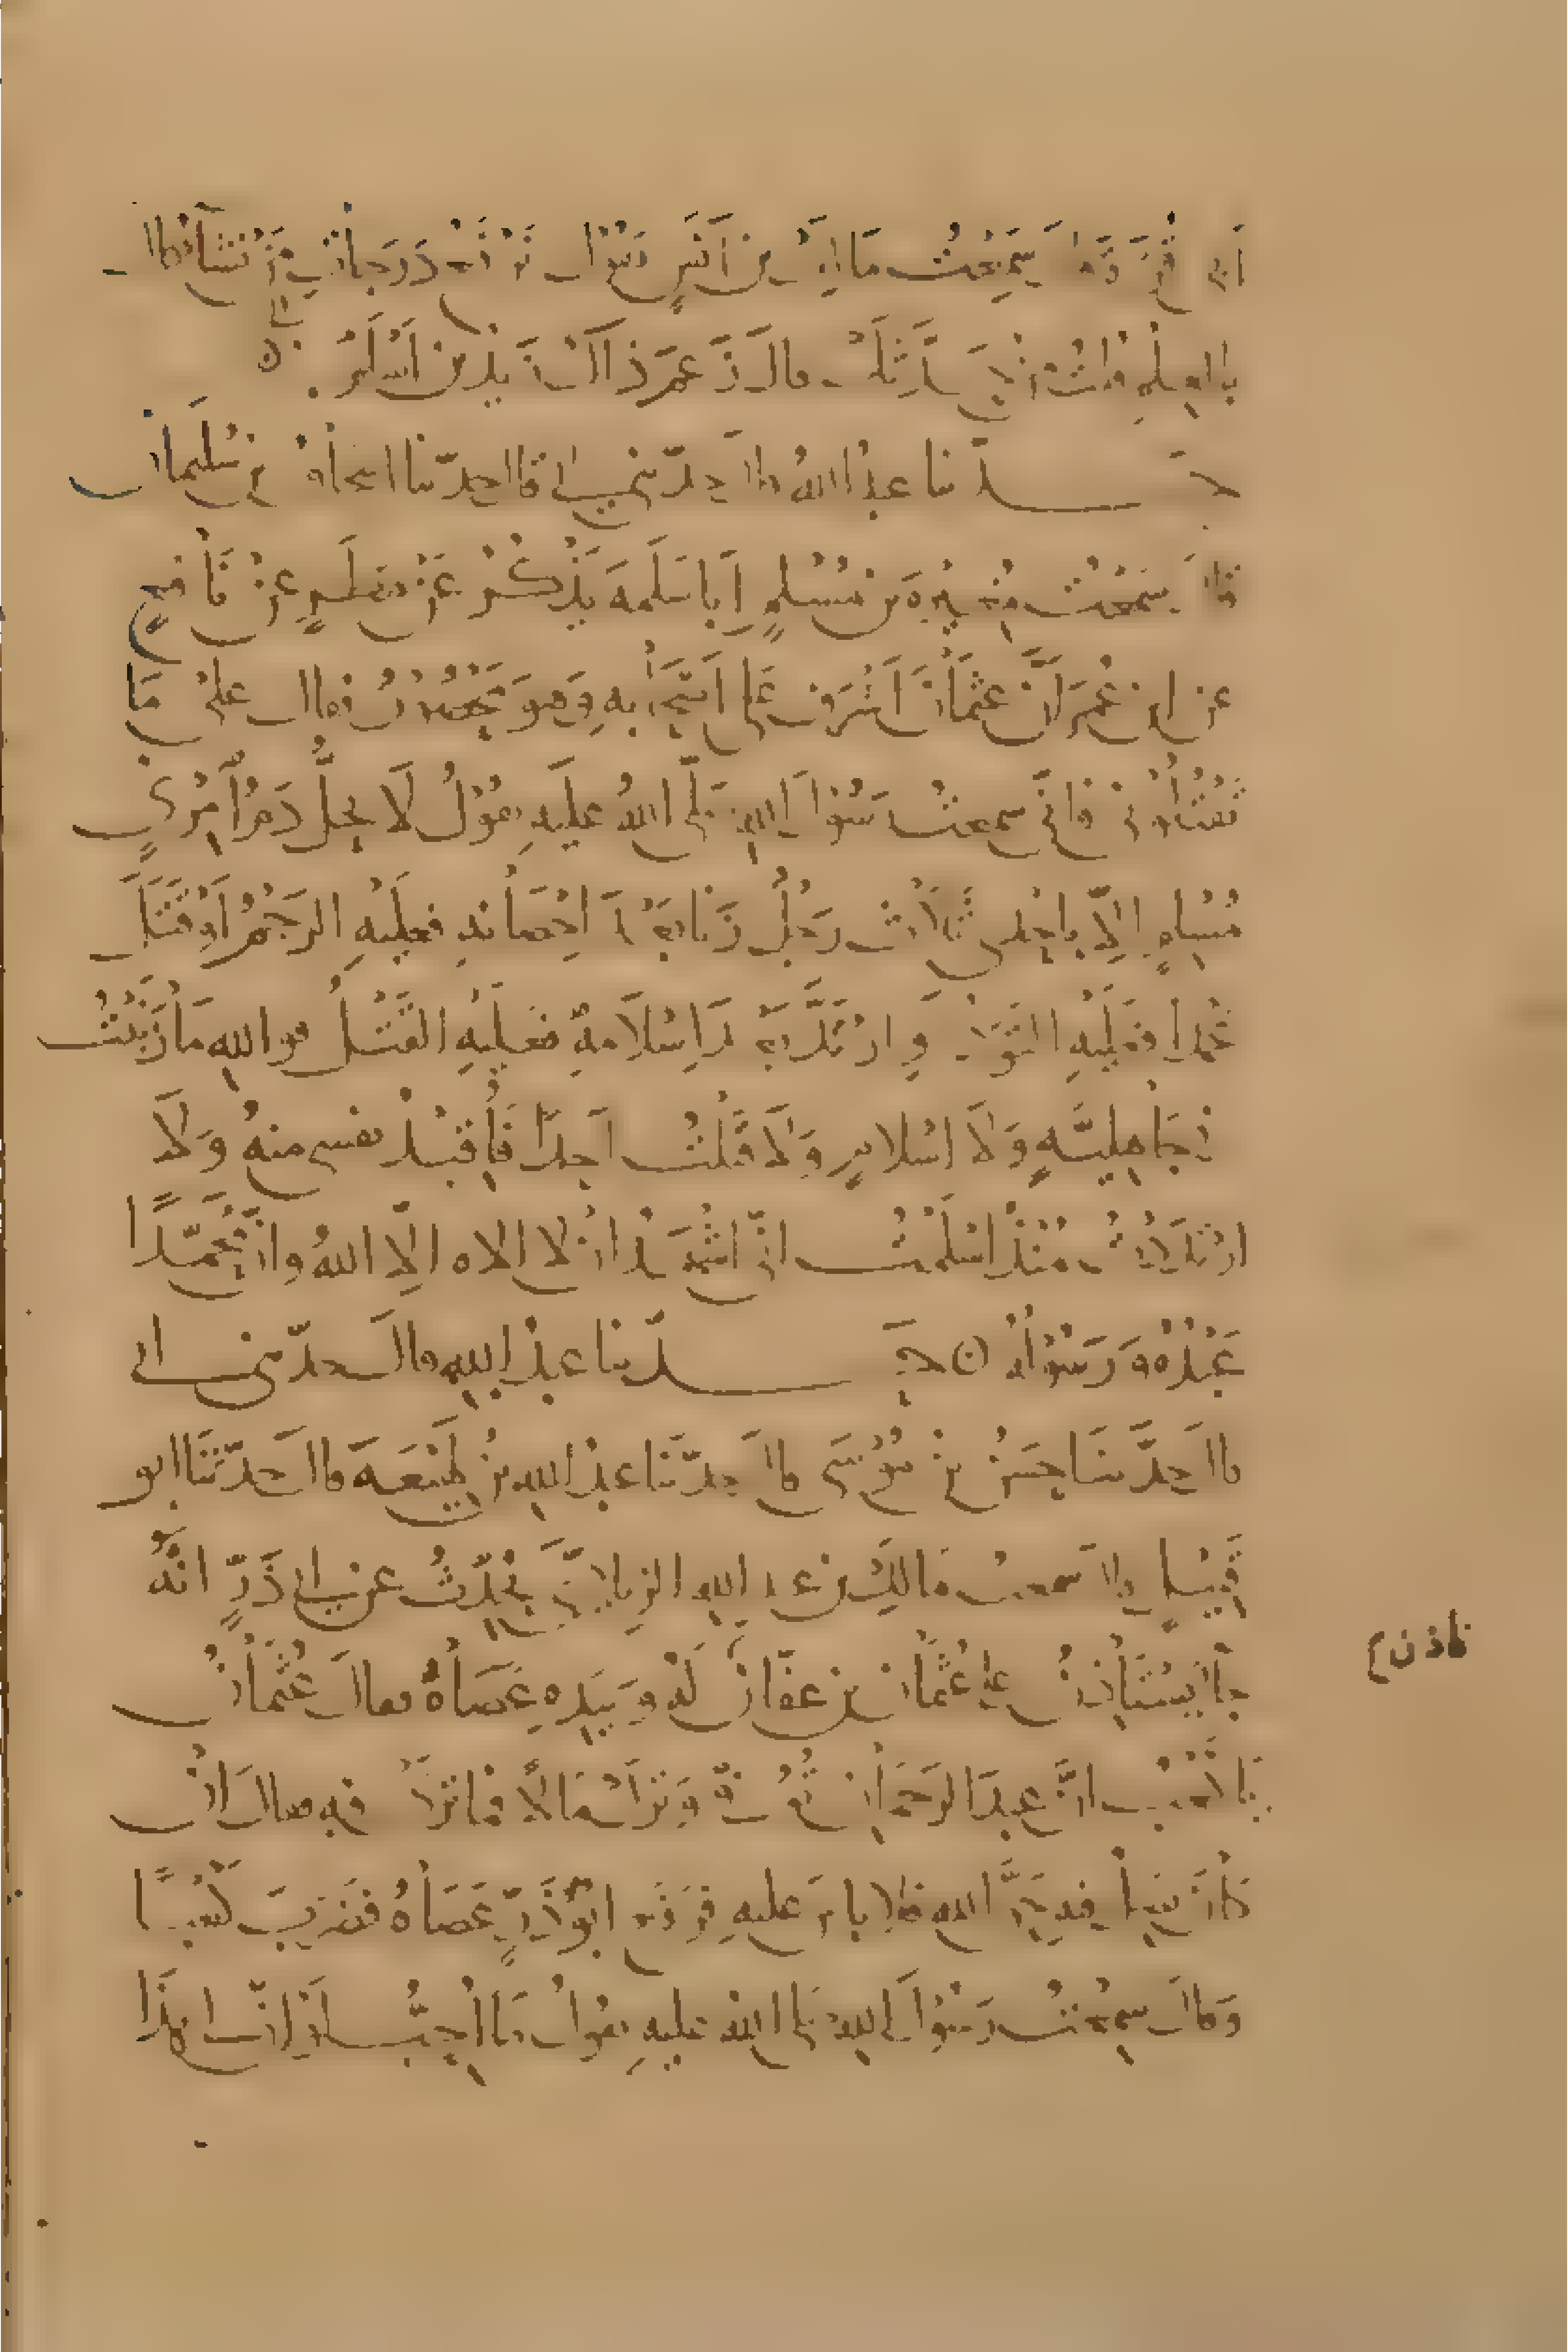 ابن ‏ سمعت مالك بن أنس يقول نرفع درجات من نشاء قال
بالعلم قلت من حدثك قال زعم ذاك زيد بن أسلم
حدثنا عبد الله قال حدثني أبي قال حدثنا إسحاق بن سليمان
قال سمعت مغيرة بن مسلم أبا سلمة يذكر عن مطر عن نافع
عن ابن عمر أن عثمان أشرف على أصحابه وهو محصور فقال على ما
تقتلوني فإني سمعت رسول الله صلى الله عليه يقول لا يحل دم امرئ
مسلم إلا بإحدى ثلاث رجل زنا بعد إحصانه فعليه الرجم أو قتل
عمدا فعليه القود أو ارتد بعد إسلامه فعليه القتل فوالله ما زنيت
في جاهلية ولا إسلام ولا قتلت أحدا فأقيد نفسي منه ولا
ارتددت منذ أسلمت إني أشهد أن لا إلاه إلا الله وأن محمدا
عبده ورسوله ه حدثنا عبد الله قال حدثني أبي
قال حدثنا حسن بن موسى قال حدثنا عبد الله بن لهيعة قال حدثنا أبو
قبيل قال سمعت مالك بن عبد الله الزيادي يحدث عن أبي ذر أنه
جاء يستأذن على عثمان بن عفان فأذن له وبيده عصاه فقال عثمان
يا كعب إن عبد الرحمان توفي وترك مالا فما ترى فيه فقال إن
كان يصل فيه حق الله فلا بأس عليه فرفع أبو ذر عصاه فضرب كعبا
وقال سمعت رسول الله صلى الله عليه يقول ما أحب لو أن لي هذا